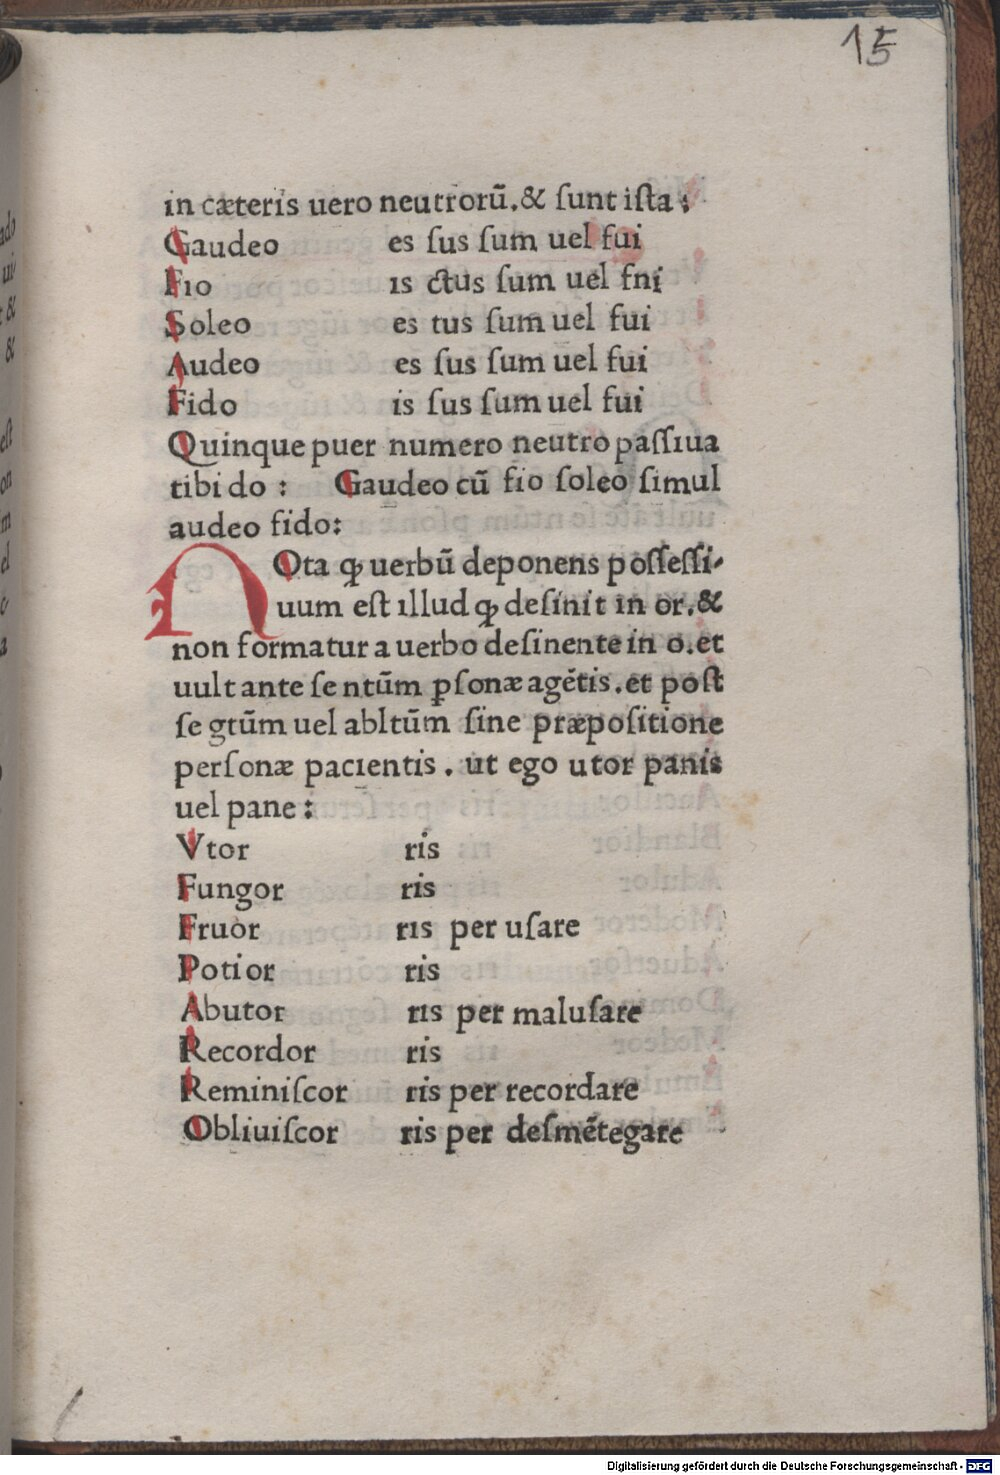 15
in cæteris uero neutrorū.& ſunt iſta:
Gaudeo es ſus ſum uel fui
Fıo ıs ctus ſum uel fni
Soleo es tus ſum uel fui
Audeo es ſus ſum uel fui
Fido is ſus ſum uel fui
Quinque puer numero neutro paſſiua
tibi do : Gaudeo cū fio ſoleo ſimul
audeo fido:
NOta ꝙ uerbū deponens poſſeſſi-
uum eſt ıllud ꝙ deſinit in or.&
non formatur a uerbo deſinente in o.et
uult ante ſe ntūm ꝑſonæ agētis.et poſt
ſe gtūm uel abltūm ſine præpoſitione
perſonæ pacientis. ut ego utor panis
uel pane:
Vtor ris
Fungor ris
Fruor rıs per uſare
Potior ris
Abutor rıs per maluſare
Recordor ris
Reminiſcor ris per recordare
Obliuiſcor ris per deſmētegare
Digitalisierung gefördert durch die Deutsche Forschungsgemeinschaft - DFG